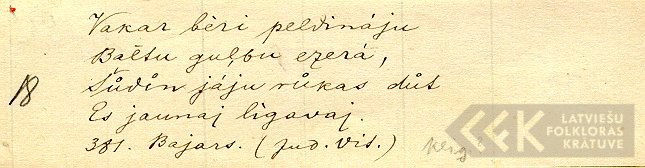 Vakar bēri peldināju
Baltu guļbu ezerá,
18 Šůdiņ jáju růkas důt
Es jaunaj ligavaj.
381. Bajars. (jud. vit.)
LATVIEŠU
FOLKLORAS
KRĀTUVE